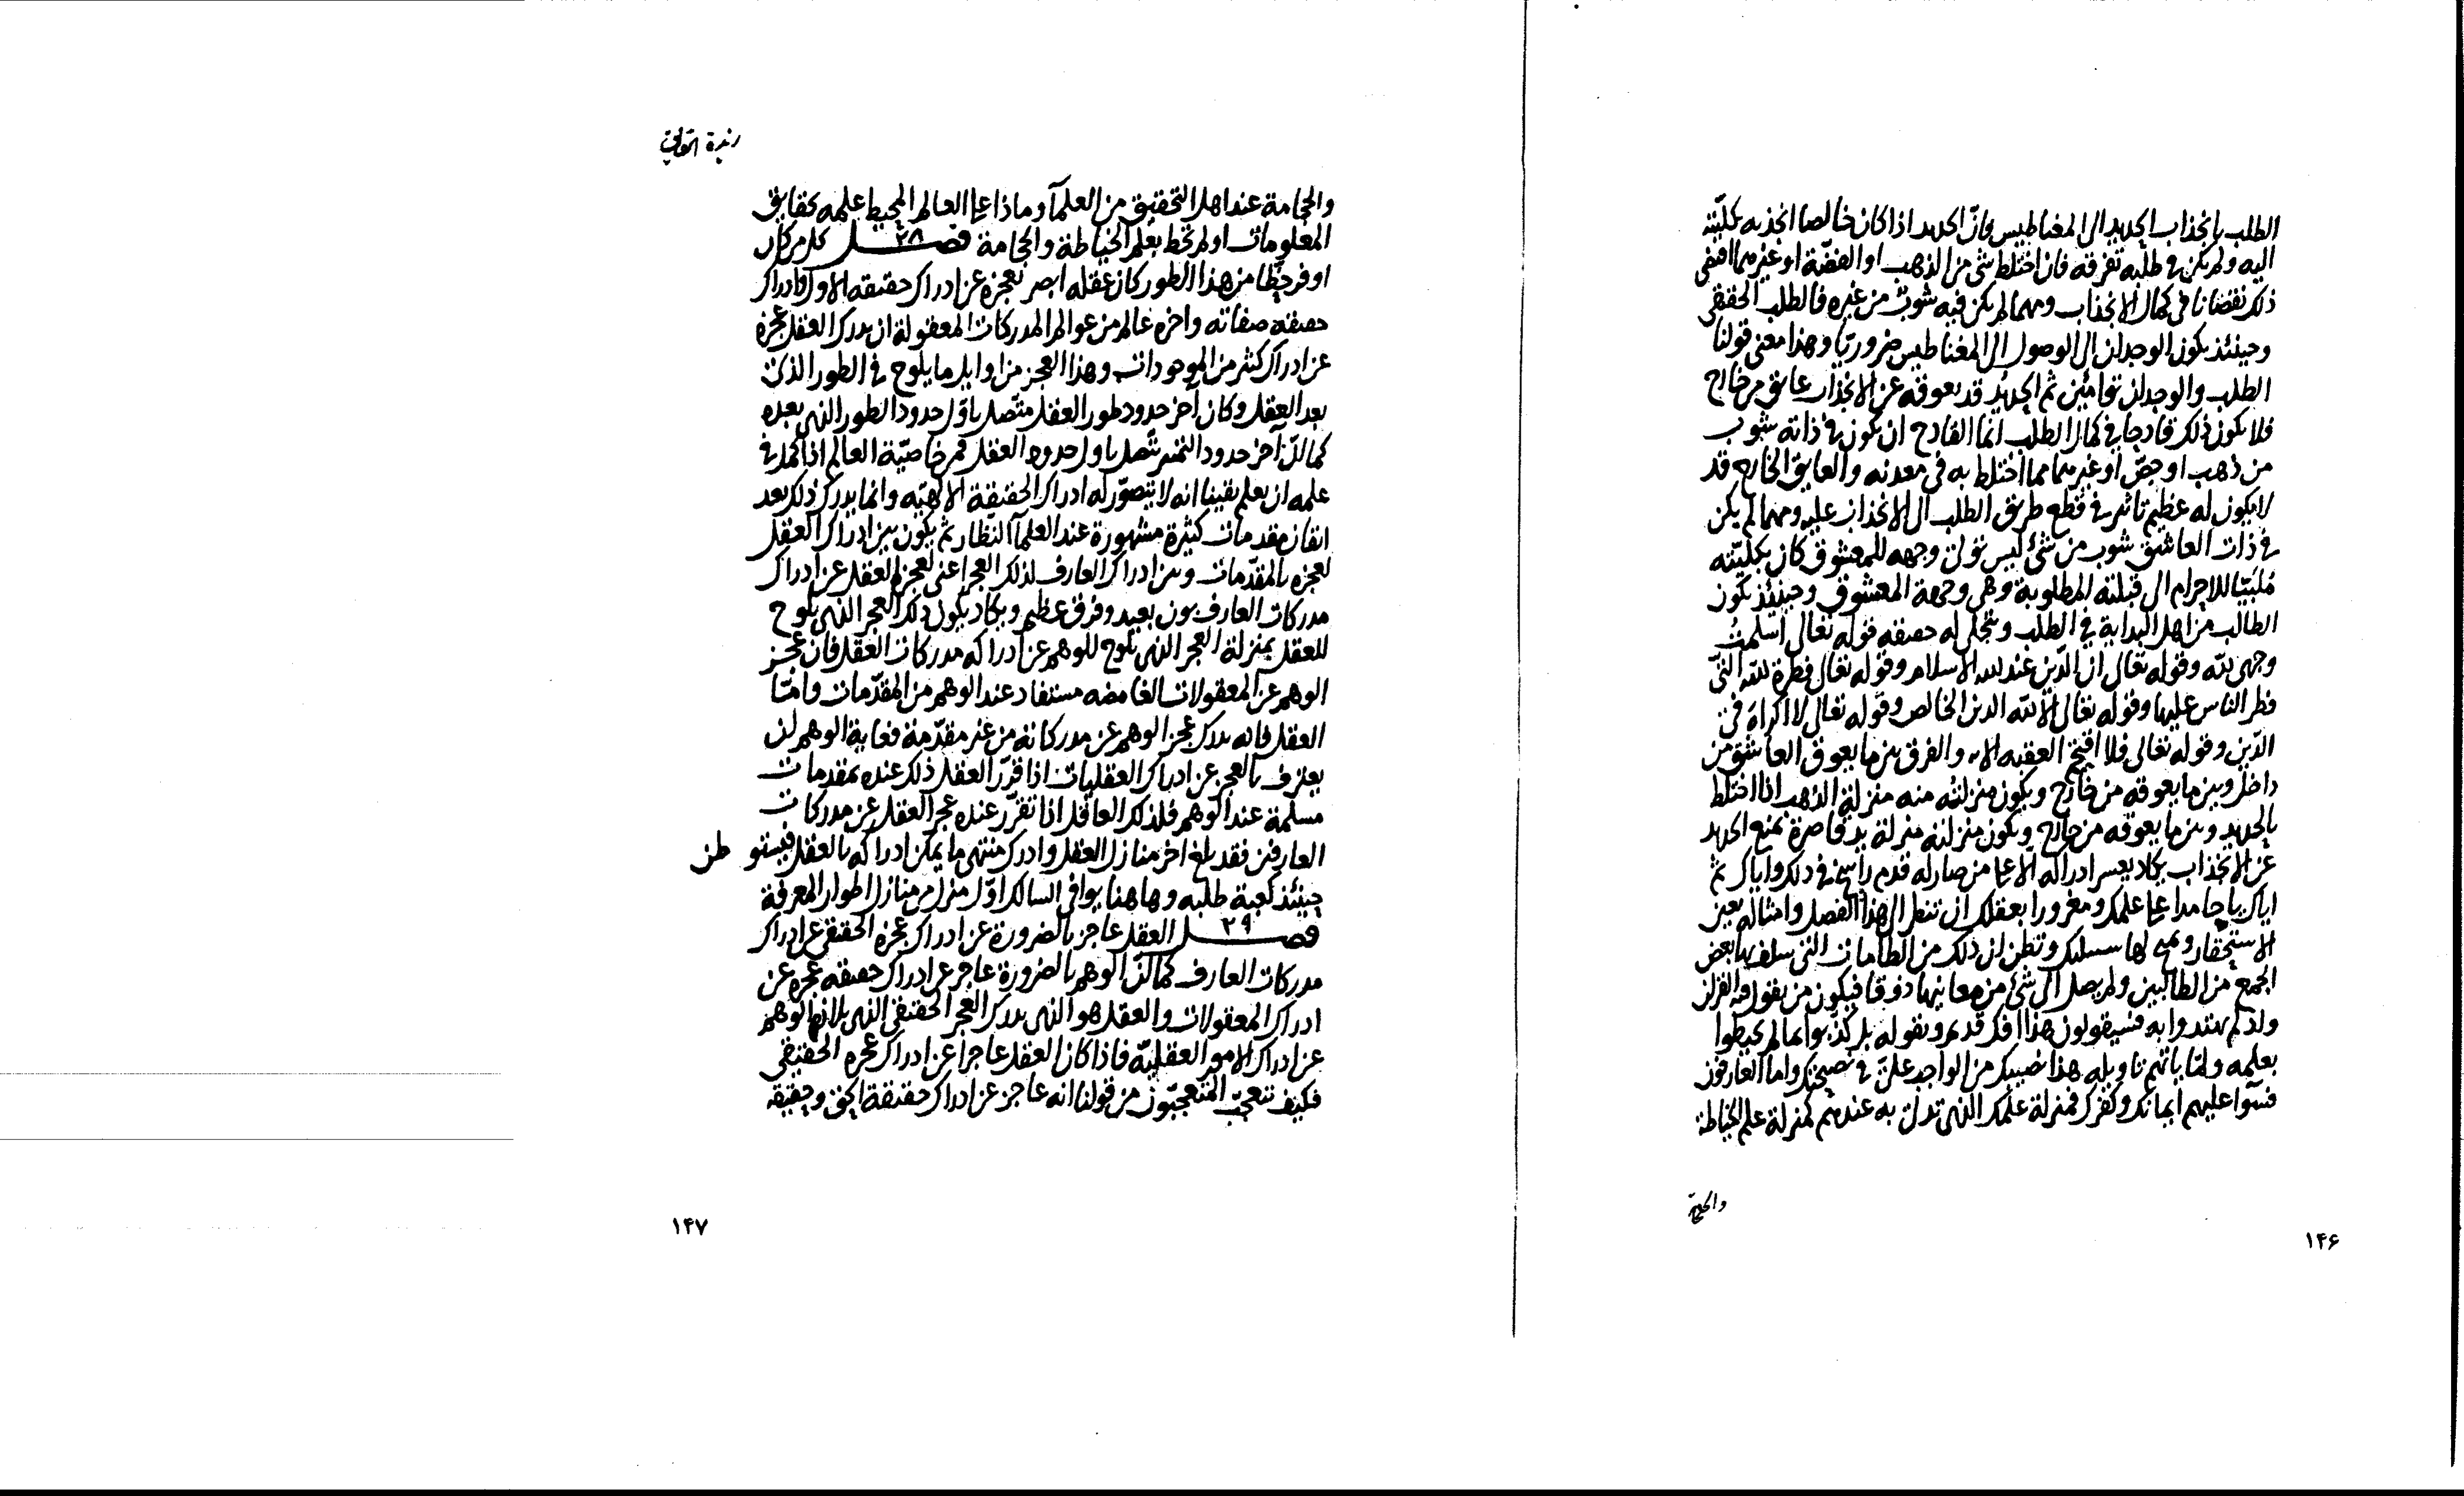 الطلب بانجذاب الحديد الى المغناطيس فان الحديد اذا كان خالصا انجذب بكليّته
اليه ولم يكن في طلبه تفرقه فان اختلط بشئ من الذهب او الفضّة او غيرهما اقتضى
ذلك نقصانا في كمال الانجذاب ومهما لم يكن فيه شوبٌ من غيره فالطلب الحقيقي
وحينئذ يكون الوجدان الى الوصول الى المغناطيس ضروريّا وهذا معنى قولنا
الطلب والوجدان توأمين ثم الحديد قد يعوقه عن الانجذاب عايق من خارج
فلا يكون ذلك قادحا في كمال الطلب انما القادح ان يكون في ذاته شوب
من ذهب او جصّ او غيرهما مما اختلط به في معدنه والعايق الخارج قد
لا يكون له عظيم تاثير في قطع طريق الطلب الى الانجذاب عليه ومهما لم يكن
في ذات العاشق شوب من شئ ليس يولي وجهه للمعشوق كان بكليّته
مُلبّيًا للاحرام الى قبلته المطلوبة وهي وجهة المعشوق وحينئذ يكون
الطالب من اهل البداية في الطلب ويتجلى له حقيقه قوله تعالى اسلمتُ
وجهى لله وقوله تعالى ان الدّين عند الله الاسلام وقوله تعالى فطرة الله التى
فطر الناس عليها وقوله تعالى الا لله الدين الخالص وقوله تعالى لا اكراه في
الدّين وقوله تعالى فلا اقتحم العقبه الاية والفرق بين ما يعوق العاشق من
داخل وبين ما يعوقه من خارج ويكون منزلته منه منزلة الذهب اذا اختلط
بالحديد وبين ما يعوقه من خارج ويكون منزلته منزلة يدٍ قاصرة تمنع الحديد
عن الانجذاب يكاد يعسر ادراكه الا على من صار له قدم راسخ في ذلك واياك ثم
اياك يا جامدا على علمك ومغرورا بعقلك ان تنظر الى هذا الفصل وامثاله بعين
الاستحقار وتظن ان ذلك من الطامات التى سلف بها بعض
الجمع من الطالبين ولم يصل الى شئ من معانيها ذوقا فيكون من يقول فيه القران
واذ لم يهتدوا به فسيقولون هذا افك قديم وبقوله بل كذّبوا بما لم يحيطوا
بعلمه ولمّا ياتهم تاويله هذا نصيبك من الواجد علىّ في نصيحتك واما العارفون
فسوآ عليهم ايمانك وكفرك فمنزلة علمك الذى تدلّ به عندهم كمنزلة علم الخياطة
والحجامة
١٤۶
زبدة الحقايق
والحجامة عند اهل التحقيق من العلمآ وماذا على العالم المحيط علمه بحقايق
المعلومات اولم تحط بعلم الخياطة والحجامة فصـــل ٢٨ كل من كان
اوفر حظّا من هذا الطور كان عقله ابصر بعجزه عن ادراك حقيقه الاول وادراك
حقيقه صفاته واخره عالم من عوالم المدركات المعقولة ان يدرك العقل عجزه
عن ادراك كثير من الموجودات وهذا العجز من اوايل ما يلوح في الطور الذى
بعد العقل وكان آخر حدود طور العقل متّصل باوّل حدود الطور الذى بعده
كما ان آخر حدود التميز يتّصل باول حدود العقل فمن خاصيّة العالم اذا كمل في
علمه ان يعلم يقينا انه لا يتصوّر له ادراك الحقيقة الالهيّه وانما يدرك ذلك بعد
اتقان مقدمات كثيرة مشهورة عند العلمآ النظار ثم يكون بين ادراك العقل
لعجزه بالمقدّمات وبين ادراك العارف لذلك العجز اعنى لعجز العقل عن ادراك
مدركات العارف بون بعيد وفرق عظيم ويكاد يكون ذلك العجز الذى يلوح
للعقل بمنزلة العجز الذى يلوح للوهم عن ادراكه مدركات العقل فان عجز
الوهم عن المعقولات الغامضه مستفاد عند الوهم من المقدّمات وامّا
العقل فانه يدرك عجز الوهم عن مدركاته من غير مقدّمة فغاية الوهم ان
يعترف بالعجز عن ادراك العقليات اذا قرّر العقل ذلك عنده بمقدمات
مسلمة عند الوهم فلذلك العاقل اذا تقرّر عنده عجز العقل عن مدركات
العارفين فقد بلغ اخر منازل العقل وادرك منتهى ما يمكن ادراكه بالعقل فيستوطن
حينئذ كعبة طلبه وهاهنا يوافى السالك اوّل منزل من منازل اطوار المعرفة
فصـــل ٢٩ العقل عاجز بالضرورة عن ادراك عجزه الحقيقى عن ادراك
مدركات العارف كما انّ الوهم بالضرورة عاجز عن ادراك حقيقه عجزه عن
ادراك المعقولات والعقل هو الذى يدرك العجز الحقيقى الذى يلازم الوهم
عن ادراك الامور العقليّة فاذا كان العقل عاجزا عن ادراك عجزه الحقيقى
فكيف تتعجبّ المتعجبّون من قولنا انه عاجز عن ادراك حقيقة الحق وحقيقه
١٤٧